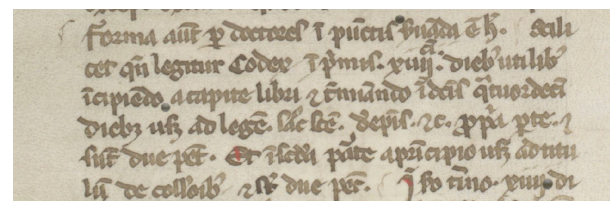 forma aut p doctores ī pūctis ẜuāda ē h. scili
cet qn legitur Codex ī pͥmis. xiiii. dieb utilib
īcipiēdo a capite libri ⁊ tmīando ī dcis qtuordecī
dieb usq ad legē. sāc. de epis. ⁊ c. ppͥa pte. ⁊
sūt due pet. Et ī scda pate a pncipio usq ad titu
lū de ⁊ st due pet. tmo. xiiii di